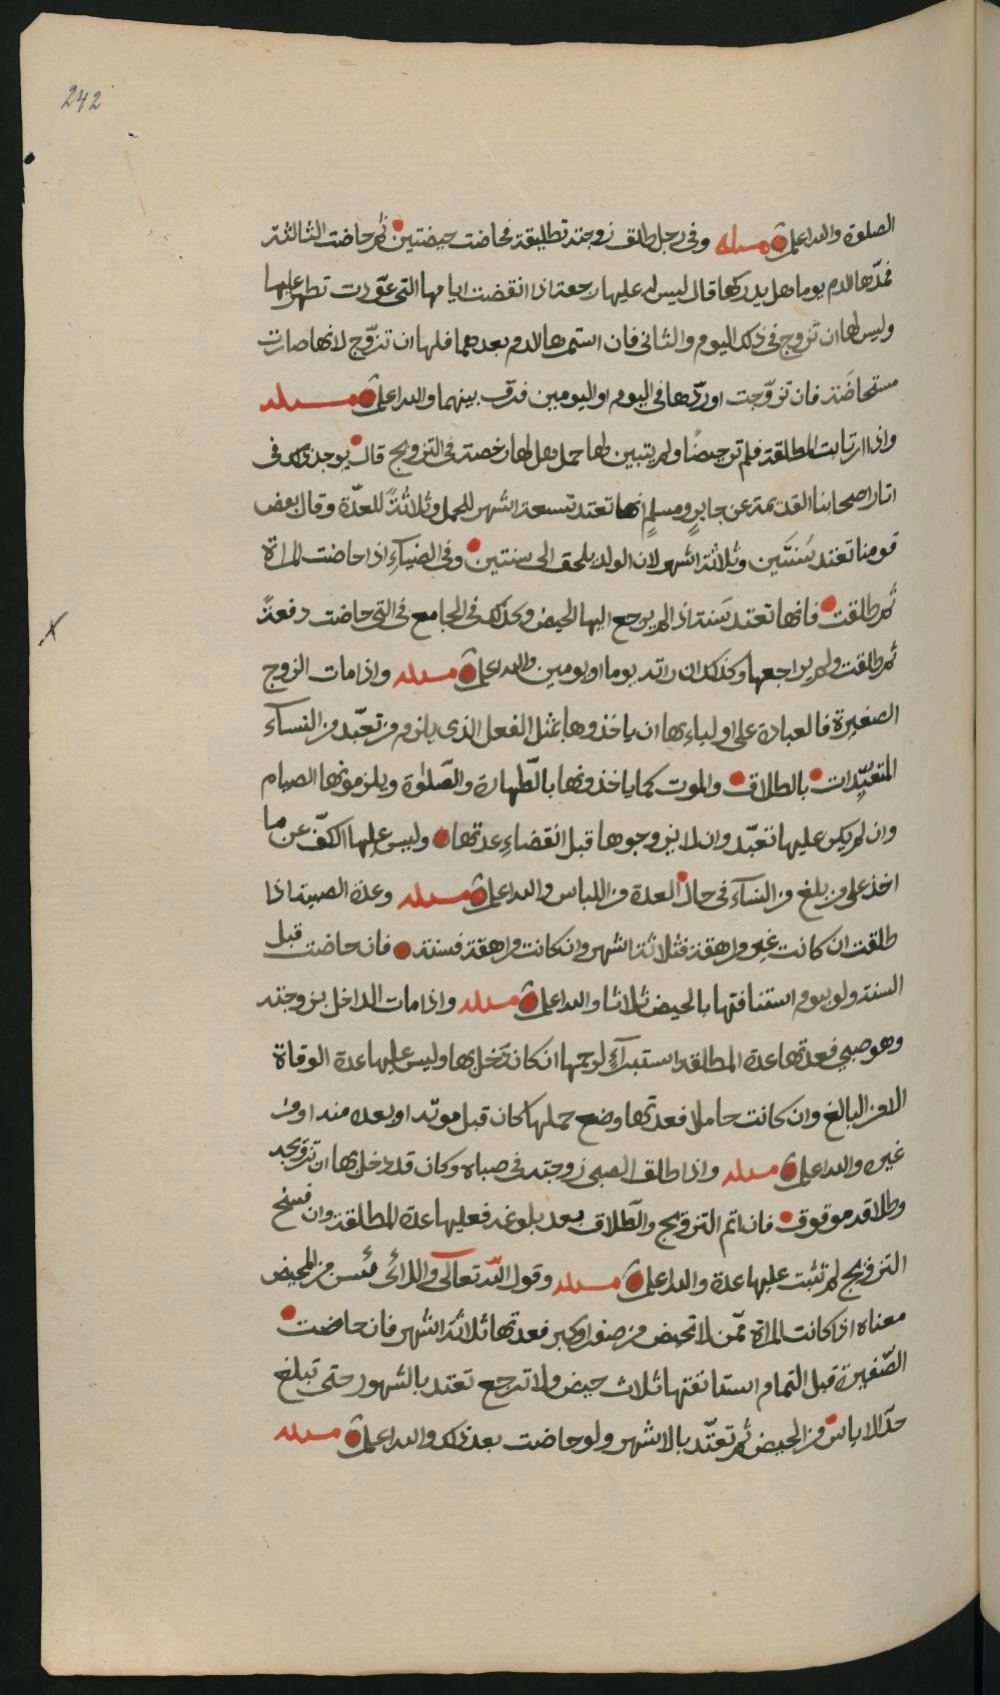 242
الصلوة والله اعلم مسئله وفى رجل طلق زوجته تطليقة فحاضت حيضتين ثم حاضت الثالثة
فمدّها الدم يوما هل يدركها قال ليس له عليها رجعة اذا انقضت ايامها التى عوّدت تطهر عليها
وليس لها ان تزوج فى ذلك اليوم والثانى فان استمر بها الدم بعدهما فلها ان تزوّج لانها صارت
مستحاضة فان تزوّجت او ردّها فى اليوم او اليومين فرق بينهما والله اعلم مسئله
واذا ارتابت المطلقة فلم تر حيضًا ولم يتبين لها حمل هل لها رخصة فى التزويج قال يوجد ذلك فى
اثار اصحابنا القديمة عن جابرٍ ومسلمٍ انها تعتد تسعة اشهر للحمل وثلاثةً للعدّة وقال بعض
قومنا تعتد سَنتَين وثلاثة اشهر لان الولد يلحق الى سنتين وفى الضياءِ اذا حاضت المراة
ثم طلقت فانها تعتد سَنة اذا لم يرجع اليها الحيض وكذلك فى الجامع فى التى حاضت دفعةً
ثم طلقت ولم يراجعها وكذلك ان راته يوما او يومين والله اعلم مسئله واذا مات الزوج
الصغيرة فالعبادة على اولياءها ان ياخذوها بمثل الفعل الذى يلزم من تعبّد من النسآء
المتعبّدات بالطلاق والموت كما ياخذونها بالطّهارة والصّلوٰة ويلزمونها الصيام
وان لم يكن عليها تعبّد وان لا يزوجوها قبل انقضاءِ عدتها وليس عليها الكفّ عن ما
اخذ على من بلغ من النسآء فى حال العدة من اللباس والله اعلم مسئله وعدة الصبية اذا
طلقت ان كانت غير مراهقة فثلاثة اشهر وان كانت مراهقة فسنة فان حاضت قبل
السنة ولو بيوم استنافتها بالحيض ثلاثا والله اعلم مسئله واذا مات الداخل بزوجته
وهو صبى فعدتها عدة المطلقة استبرآءٍ لرحمها ان كان دَخل بها وليس عليها عدة الوفاة
الا من البالغ وان كانت حاملا فعدتها وضع حملها كان قبل موته او بعده منه او من
غيره والله اعلم مسئله واذا طلق الصبى زوجته فى صباه وكان قد دخل بها ان تزويجه
وطلاقه موقوف فان اتم التزويج والطّلاق بعد بلوغه فعليها عدة المطلقة وان فسخ
التزويج لم تثبت عليها عدة والله اعلم مسئله وقول الله تعالى واللآئى يئسن من المحيض
معناه اذا كانت المراة ممّن لا تحيض من صغر او كبر فعدتها ثلاثة اشهر فان حاضت
الصّغيرة قبل التمام استانفتها ثلاث حيض ولا ترجع تعتد بالشهور حتى تبلغ
حدّ الاياس من الحيض ثم تعتّد بالاشهر ولو حاضت بعد ذلك والله اعلم مسئله